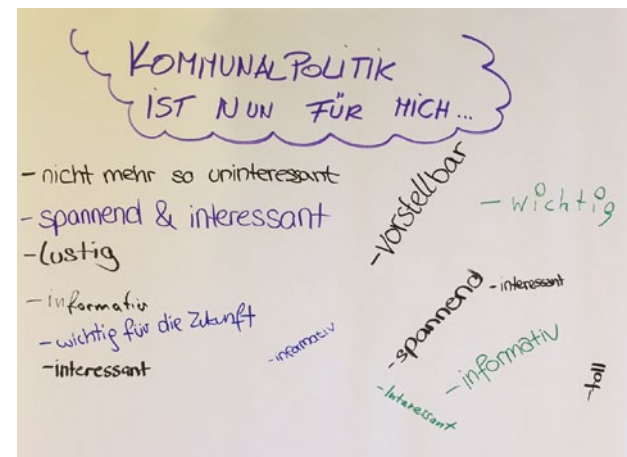 KOMMUNALPOLITIK
IST NUN FÜR MICH...
- nicht mehr so uninteressant
- spannend & interessant
- lustig
- informativ
- wichtig für die Zukunft
- interessant
- informativ
- Vorstellbar
- wichtig
- spannend
- interessant
- informativ
- Interessant
- toll